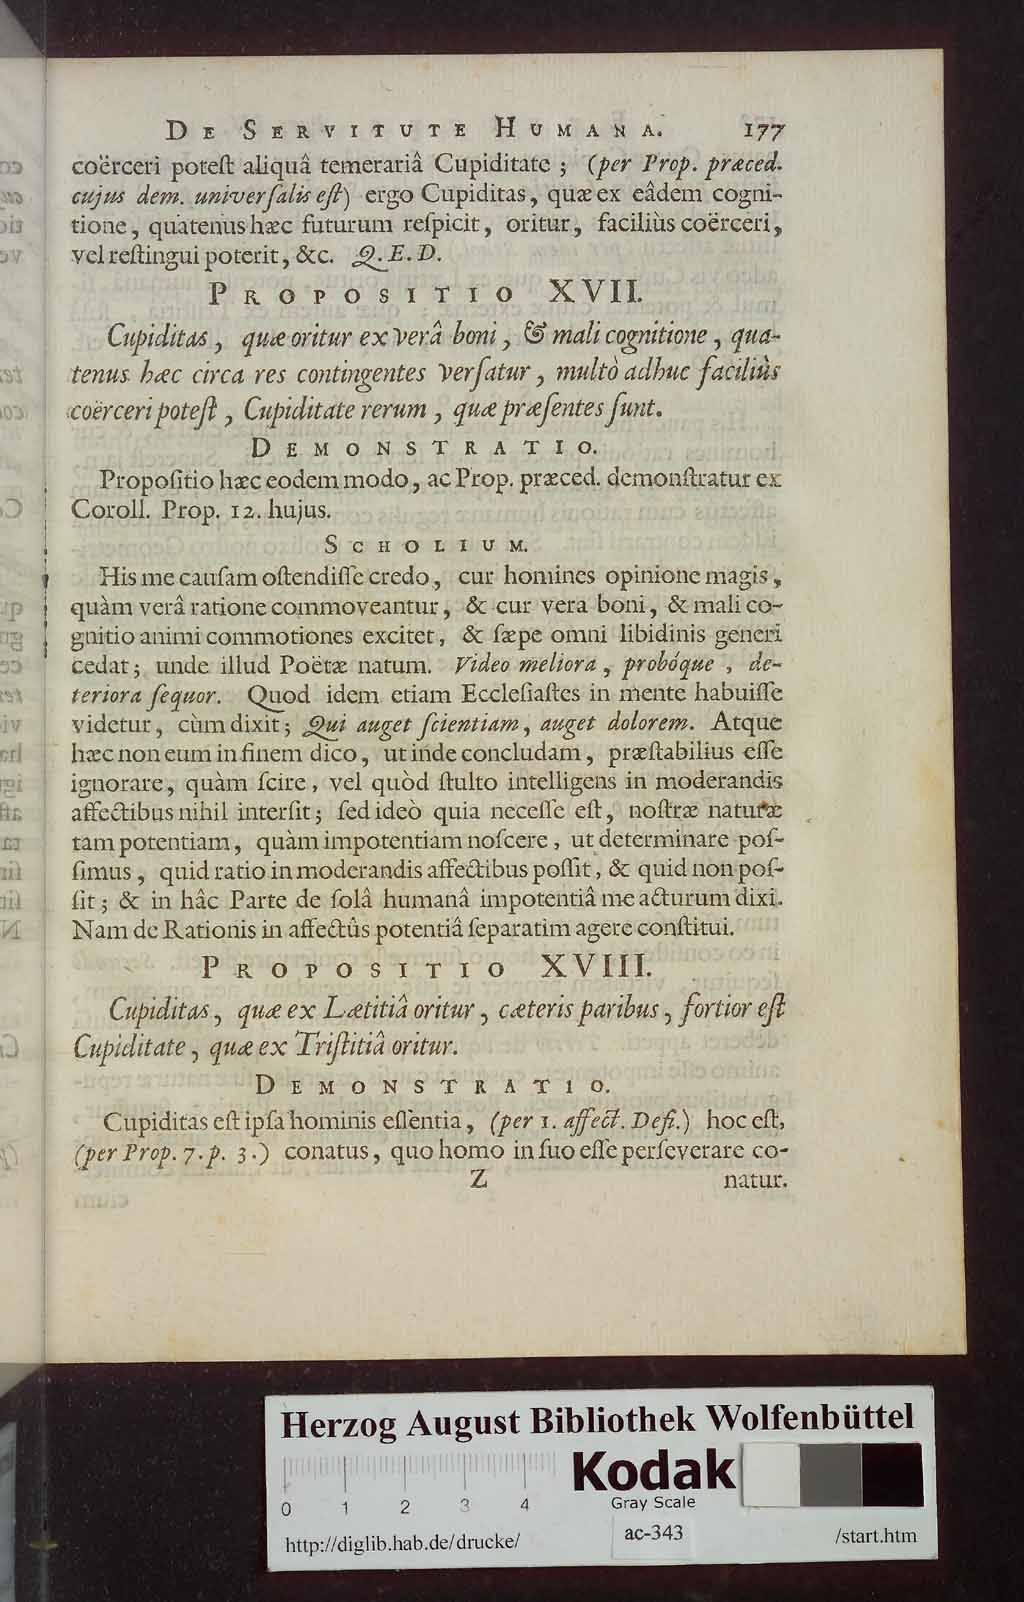 DE SERVITUTE HUMANA. 177
coërceri poteſt aliquâ temerariâ Cupiditate ; (per Prop. præced.
cujus dem. univerſalis eſt) ergo Cupiditas, quæ ex eâdem cogni-
tione, quatenus hæc futurum reſpicit, oritur, faciliùs coërceri,
vel reſtingui poterit, &c. Q.E.D.
PROPOSITIO XVII.
Cupiditas, quæ oritur ex verâ boni, & mali cognitione, qua-
tenus hæc circa res contingentes verſatur, multò adhuc faciliùs
coërceri poteſt, Cupiditate rerum, quæ præſentes ſunt.
DEMONSTRATIO.
Propoſitio hæc eodem modo, ac Prop. præced. demonſtratur ex
Coroll. Prop. 12. hujus.
SCHOLIUM.
His me cauſam oſtendiſſe credo, cur homines opinione magis,
quàm verâ ratione commoveantur, & cur vera boni, & mali co-
gnitio animi commotiones excitet, & ſæpe omni libidinis generi
cedat; unde illud Poëtæ natum. Video meliora, probóque, de-
teriora ſequor. Quod idem etiam Eccleſiaſtes in mente habuiſſe
videtur, cùm dixit; Qui auget ſcientiam, auget dolorem. Atque
hæc non eum in finem dico, ut inde concludam, præſtabilius eſſe
ignorare, quàm ſcire, vel quòd ſtulto intelligens in moderandis
affectibus nihil interſit; ſed ideò quia neceſſe eſt, noſtræ naturæ
tam potentiam, quàm impotentiam noſcere, ut determinare poſ-
ſimus, quid ratio in moderandis affectibus poſſit, & quid non poſ-
ſit; & in hâc Parte de ſolâ humanâ impotentiâ me acturum dixi.
Nam de Rationis in affectûs potentiâ ſeparatim agere conſtitui.
PROPOSITIO XVIII.
Cupiditas, quæ ex Lætitiâ oritur, cæteris paribus, fortior eſt
Cupiditate, quæ ex Triſtitiâ oritur.
DEMONSTRATIO.
Cupiditas eſt ipſa hominis eſſentia, (per 1. affect. Defi.) hoc eſt,
(per Prop. 7. p. 3.) conatus, quo homo in ſuo eſſe perſeverare co-
Z natur.
Herzog August Bibliothek Wolfenbüttel
Kodak
Gray Scale
0 1 2 3 4
http://diglib.hab.de/drucke/ ac-343 /start.htm